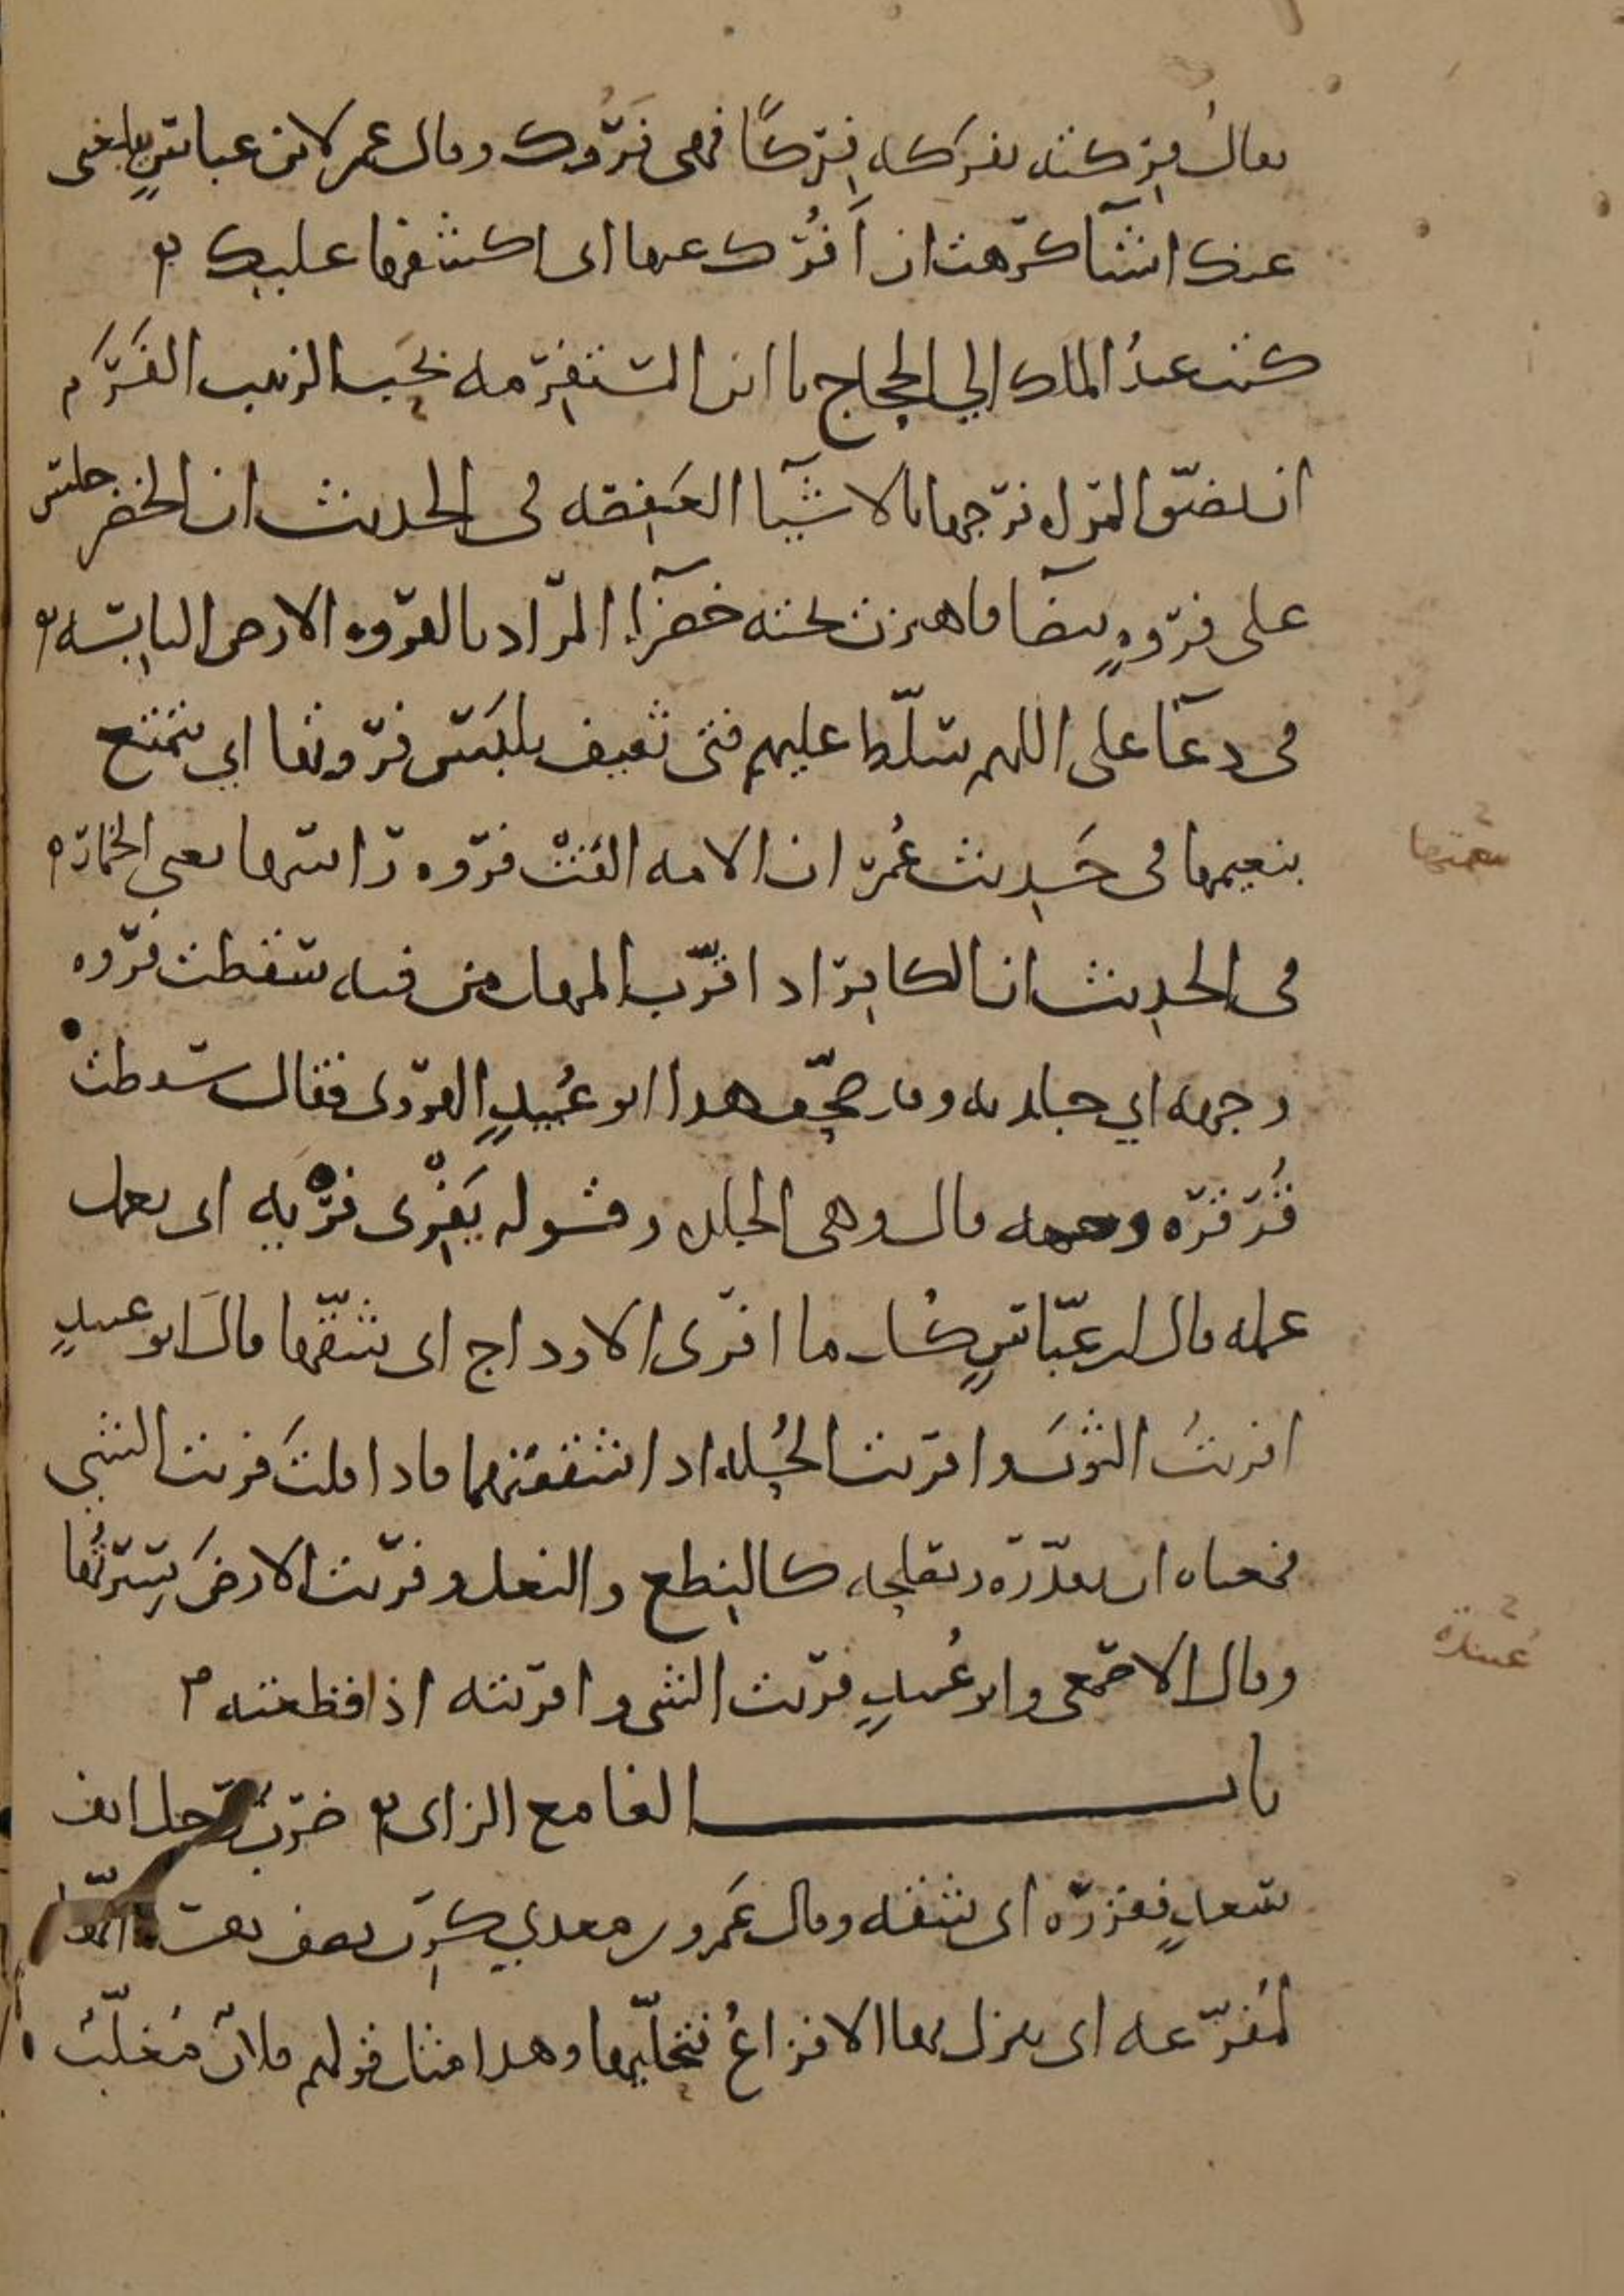 يقال فركته تفركه فِركًا فهي فَرُوك وقال عمر لابن عباسٍ بلغنى
عنك اشيآ كرهت ان اَفُرّك عنها اى اكشفها عليك
كتب عبدُ الملك الي الحجاج يا ابن المستفرمه بحَب الزبيب الفَرَم
ان تضيّق المراه فرجها بالاشيآ العفصه فى الحديث ان الخضر جلس
على فروهٍ بيضآ فاهتزت تحته خضرآء المراد بالفروه الارض اليابسه
فى دعآ على اللهم سلّط عليهم فتى ثقيف يلبَس فروتها اي يتمتع
بنعيمها فى حَديث عُمر ان الامه القَتْ فروه راسها يعنى الخمار
فى الحديث ان الكافر اذا قرّب المهل من فيه سقطت فروه
وجهه اي جلدته وقد صحّف هذا ابو عُبيدٍ الهروى فقال سقطت
قُرقره وجهه قال وهى الجلده وقوله يَفْرى فريّه اى يعمل
عمله قال ابن عبّاسٍ كُل ما افرى الاوداج اى شقّقها قالَ ابو عبيدٍ
افريتُ الثوبَ وافريت الحُله اذا شققتهما فاذا قلتَ فريت الشي
فمعناه ان تقدّره وتعالجه كالنطع والنعل وفريت الارضَ سِرتُها
وقال الاصمعى وابو عُبيدٍ فريت الشى وافريته اذا قطعته
باب الفا مع الزاى ضرب رجل انف
سعدٍ ففزره اى شقه وقال عَمرو بن معدي كرب
لمُفزّعه اى ينزل بها الافزاعُ فتجلّيها وهذا مثل قولهم فلان مُغلّبُ
بنعمتها
عبيدة